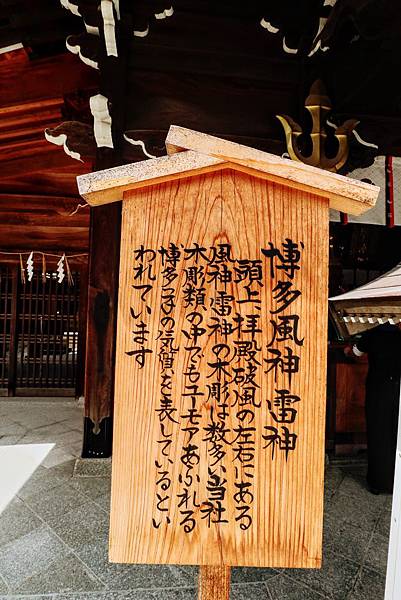 博多風神雷神
頭上拝殿破風の左右にある
風神雷神の木彫は数多い当社
木彫類の中でもユーモアあふれる
博多子の気質を表しているとい
われています